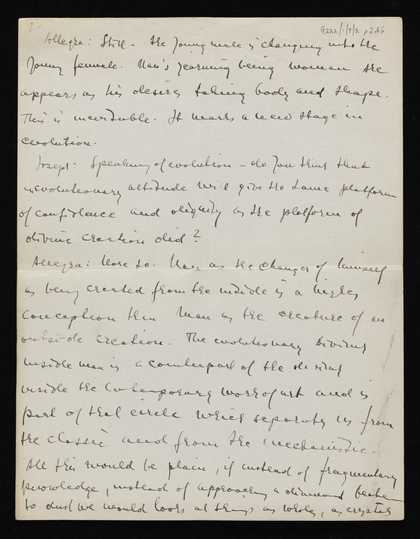 Allegra: Still - the young male is changing into the
young female. Man's yearning being woman she
appears as his desires taking body and shape.
This is inevitable. It marks a new stage in
evolution.
Joseph: Speaking of evolution - do you think that
evolutionary attitude will give the same platform
of confidence and dignity as the platform of
divine creation did?
Allegra: More so. Man as the changer of himself
as being created from the inside is a higher
conception than Man as the creature of an
outside creation. The evolutionary divinity
inside man is a counterpart of the divinity
inside the contemporary work of art and is
part of that circle which separates us from
the classic and from the mechanistic.
All this would be plain, if instead of fragmentary
knowledge, instead of approaching a diamond
to dust we would look at things as wholes, as crystals